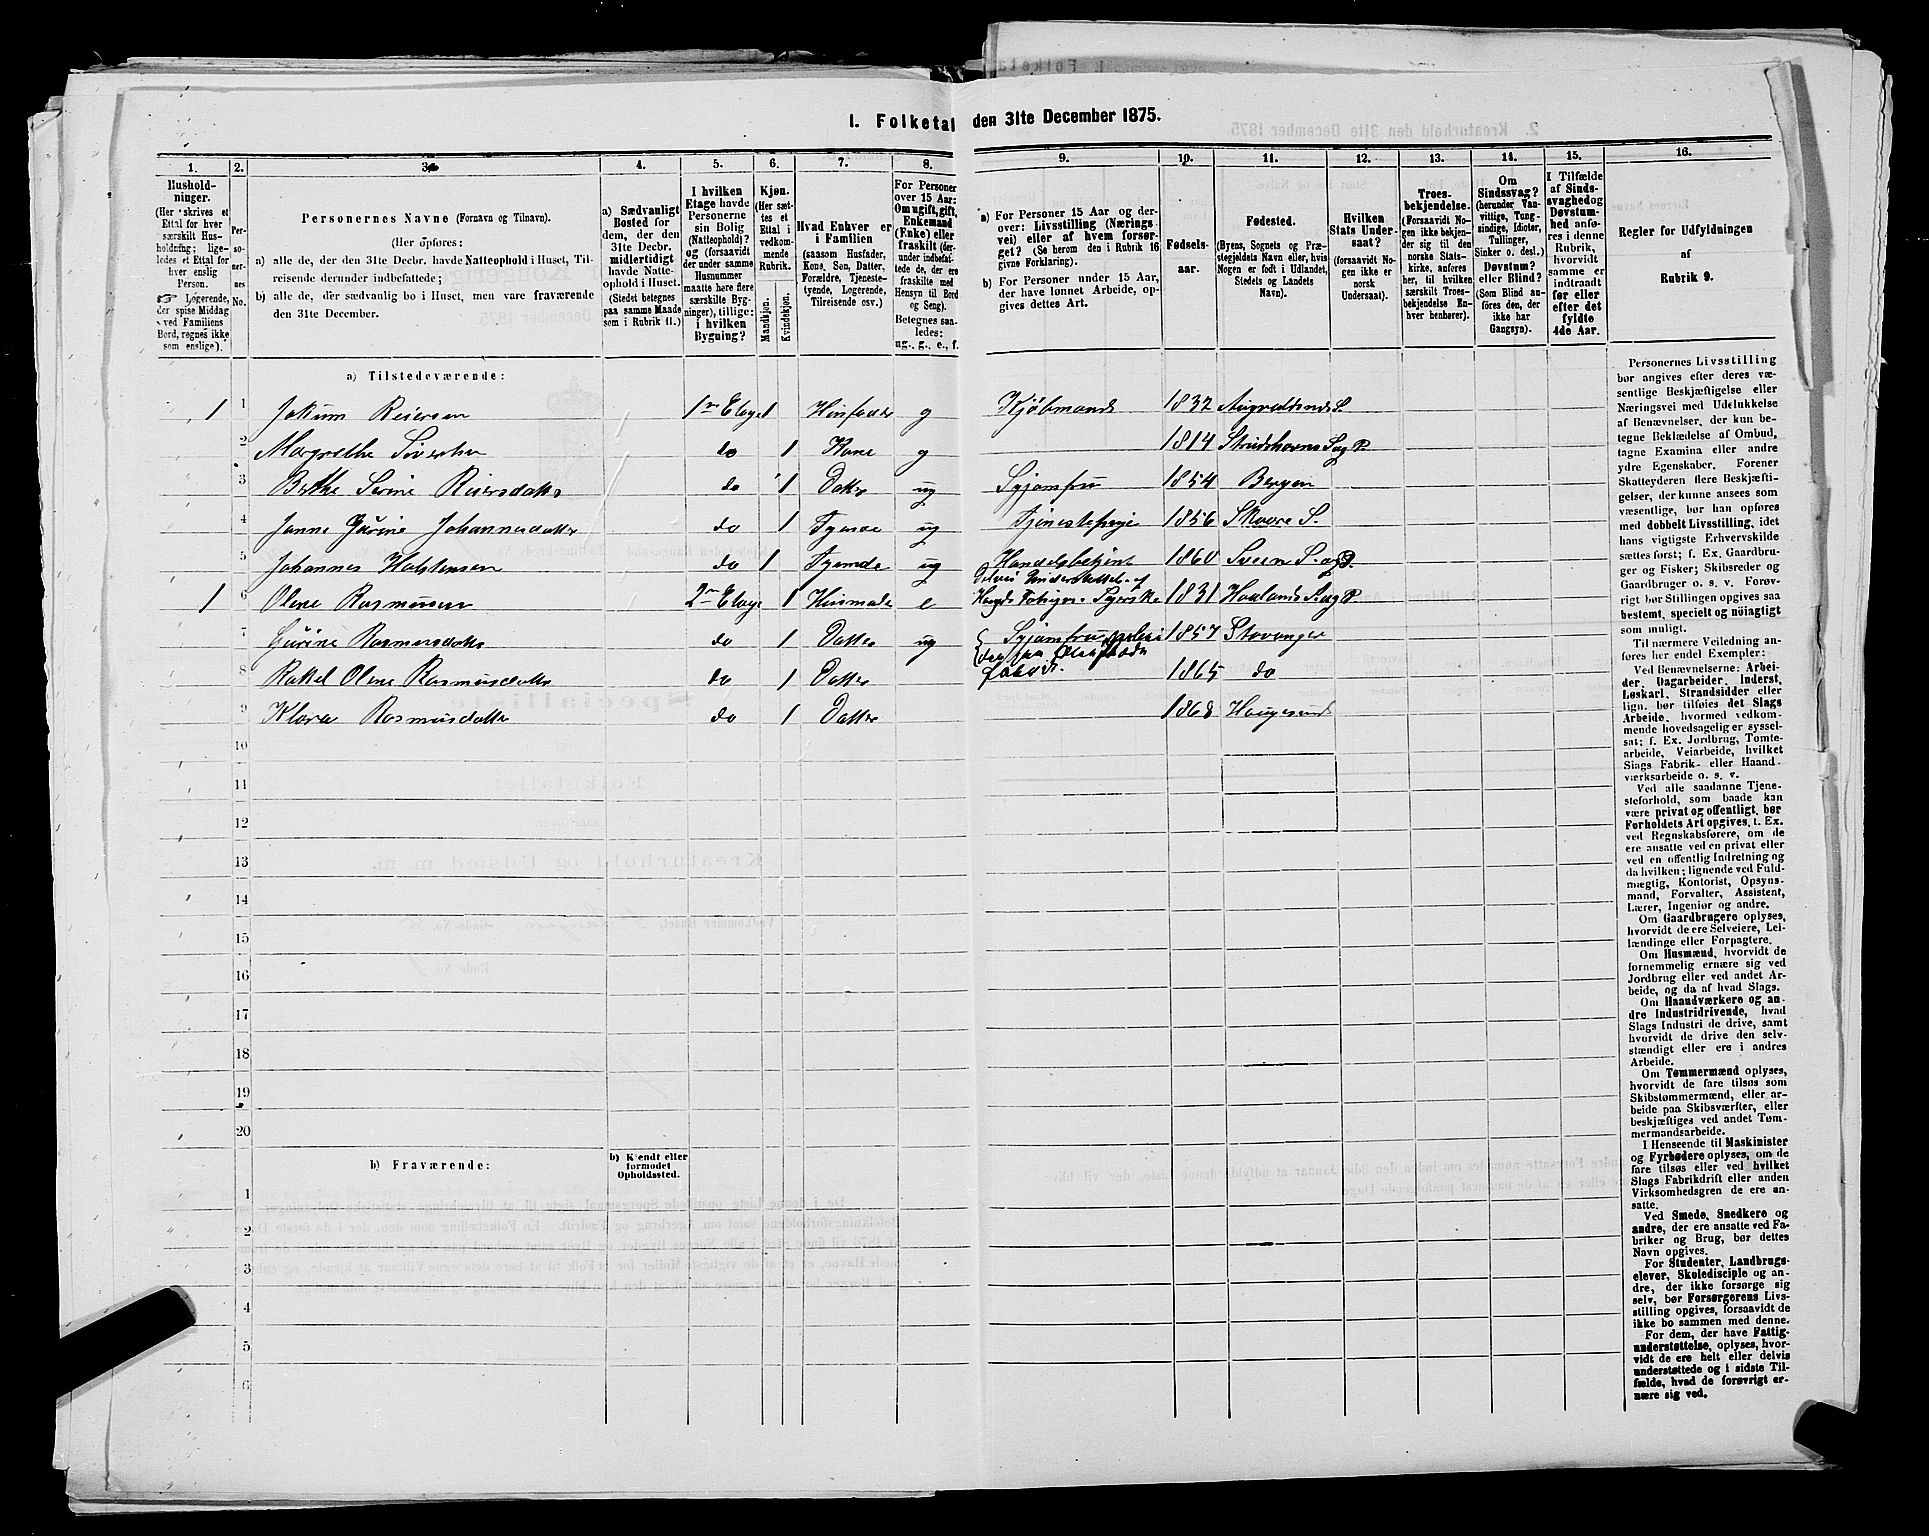 1. Folketal den 31te December 1875.
1. 2. 3. 4. 5. 6. 7. 8. 9. 10. 11. 12. 13. 14. 15. 16.
Hushold-
ninger.
(Her skrives et
Ettal for hver
særskilt Hus-
holdning; lige-
ledes et Ettal for
hver enslig
Person.
☞ Logerende,
der spise Middag
ved Familiens
Bord, regnes ikke
som enslige).
Per-
so-
ner-
nes
No.
Personernes Navne (Fornavn og Tilnavn).
(Her opføres:
a) alle de, der den 31te Decbr. havde Natteophold i Huset, Til-
reisende derunder indbefattede;
b) alle de, der sædvanlig bo i Huset, men vare fraværende
den 31te December.
a) Sædvanligt
Bosted for
dem, der den
31te Decbr.
midlertidigt
havde Natte-
ophold i Huset.
(Stedet betegnes
paa samme Maade
som i Rubrik 11.)
I hvilken
Etage havde
Personerne
sin Bolig
(Natteophold)?
og (forsaavidt
der under samme
Husnummer
maatte høre flere
særskilte Byg-
ninger), tillige:
i hvilken
Bygning?
Kjøn.
(Her sæt-
tes et
Ettal i
vedkom-
mende
Rubrik.
Mandkjøn.
Kvindekjøn.
Hvad Enhver er
i Familien
(saasom Husfader,
Kone, Søn, Datter,
Forældre, Tjeneste-
tyende, Logerende,
Tilreisende osv.)
For Personer
over 15 Aar:
Om ugift, gift,
Enkemand
(Enke) eller
fraskilt (der-
under indbefat-
tede de, der ere
fraskilte med
Hensyn til Bord
og Seng).
Betegnes saa-
ledes:
ug., g., e., f.
a) For Personer 15 Aar og der-
over: Livsstilling (Nærings
vei) eller af hvem forsør-
get? (Se herom den i Rubrik 16
givne Forklaring).
b) For Personer under 15 Aar,
der have lønnet Arbeide, op-
gives dettes Art.
Fødsels-
aar.
Fødested.
(Byens, Sognets og Præ-
stegjeldets Navn eller, hvis
Nogen er født i Udlandet,
Stedets og Landets
Navn).
Hvilken
Stats Under-
saat?
(forsaavidt No-
gen ikke er
norsk
Undersaat).
Troes-
bekjendelse.
(Forsaavidt No-
gen ikke bekjen-
der sig til den
norske Stats-
kirke, anføres
her, til hvilken
særskilt Troes-
bekjendelse En-
hver henhører).
Om
Sindssvag?
(herunder Van-
vittige, Tung-
sindige, Idioter,
Tullinger,
Sinker o. desl.)
Døvstum?
eller Blind?
(Som Blind an-
føres den, der
ikke har
Gangsyn).
I Tilfælde
af Sinds-
svaghed og
Døvstum-
hed anfø-
res i denne
Rubrik,
hvorvidt
samme er
indtraadt
før eller
efter det
fyldte
4de Aar.
Regler for Udfyldningen
af
Rubrik 9.
a) Tilstedeværende:
1 1 Jakum Reiersen 1ste Etage 1 Husfader g Kjøbmand 1832 S.
2 Margrethe do 1 Kone g 1814 S. og P.
3 Berthe Serine Reiersdatter do 1 Datter ug Syjomfru 1854 Bergen
4 Janne Gurine Johannesdatter do 1 Tyende ug Tjenestepige 1856 Skaare S.
5 Johannes Halstensen do 1 Tyende ug Handelsbetjent 1860 Sveen S. og P.
1 6 Olene Rasmussen 2den Etage 1 Husmoder e 1831 S. og P.
7 Gurine Rasmusdatter do 1 Datter ug Syjomfru 1857 Stavanger
8 Rakel Olene Rasmusdatter do 1 Datter 1865 do
9 Klara Rasmusdatter do 1 Datter 1868 Haugesund
10
11
12
13
14
15
16
17
18
19
20
b) Fraværende:
b) Kjendt eller
formodet
Opholdssted.
1
2
3
4
5
6
Personernes Livsstilling
bør angives efter deres væ-
sentlige Beskjæftigelse eller
Næringsvei med Udelukkelse
af Benævnelser, der kun be-
tegne Beklædelse af Ombud,
tagne Examina eller andre
ydre Egenskaber. Forener
Skatteyderen flere Beskjæfti-
gelser, der kunne ansees som
væsentlige, bør han opføres
med dobbelt Livsstilling, idet
hans vigtigste Erhvervskilde
sættes først; f. Ex. Gaardbru-
ger og Fisker; Skibsreder og
Gaardbruger o. s. v. Forøv-
rigt bør Stillingen opgives saa
bestemt, specielt og nøiagtigt
som muligt.
Til nærmere Veiledning an-
føres her endel Exempler:
Ved Benævnelserne: Arbei-
der, Dagarbeider, Inderst,
Løskarl, Strandsidder eller
lign. bør tilføies det Slags
Arbeide, hvormed vedkom-
mende hovedsagelig er syssel-
sat; f. Ex. Jordbrug, Tomte-
arbeide, Veiarbeide, hvilket
Slags Fabrik- eller Haand-
værksarbeide o. s. v.
Ved alle saadanne Tjene-
steforhold, som baade kan
være privat og offentligt, bør
Forholdets Art opgives, t. Ex.
ved Regnskabsførere, om de
ere ansatte ved en privat eller
ved en offentlig Indretning og
da hvilken; lignende ved Fuld-
mægtig, Kontorist, Opsyns-
mand, Forvalter, Assistent,
Lærer, Ingeniør og andre.
Om Gaardbrugere oplyses,
hvorvidt de ere Selveiere, Lei-
lændinge eller Forpagtere.
Om Husmænd, hvorvidt de
fornemmelig ernære sig ved
Jordbrug eller ved andet Ar-
beide, og da af hvad Slags.
Om Haandværkere og an-
dre Industridrivende, hvad
Slags Industri de drive, samt
hvorvidt de drive den selv-
stændigt eller ere i andres
Arbeide.
Om Tømmermænd oplyses,
hvorvidt de fare tilsøs som
Skibstømmermænd, eller ar-
beide paa Skibsværfter, eller
beskjæftiges ved andet Tøm-
mermandsarbeide.
I Henseende til Maskinister
og Fyrbødere oplyses, om de
fare tilsøs eller ved hvilket
Slags Fabrikdrift eller anden
Virksomhedsgren de ere an-
satte.
Ved Smede, Snedkere og
andre, der ere ansatte ved Fa-
briker og Brug, bør dettes
Navn opgives.
For Studenter, Landbrugs-
elever, Skoledisciple og an-
dre, der ikke forsørge sig
selv, bør Forsørgerens Livs-
stilling opgives, forsaavidt de
ikke bo sammen med denne.
For dem, der have Fattig-
understøttelse, oplyses, hvor-
vidt de ere helt eller delvis
understøttede og i sidste Til-
fælde, hvad de forøvrigt er-
nære sig ved.